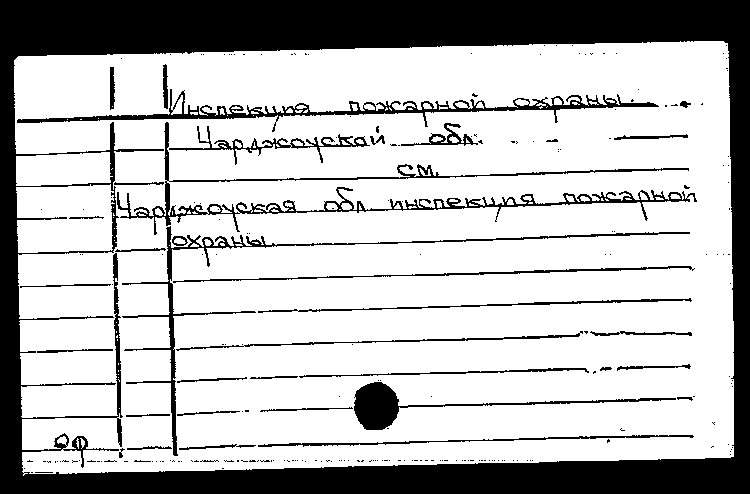 Инспекция пожарной охраны.
Чарджоуской обл.
см.
Чарджоуская обл инспекция пожарной
охраны.
ОФ